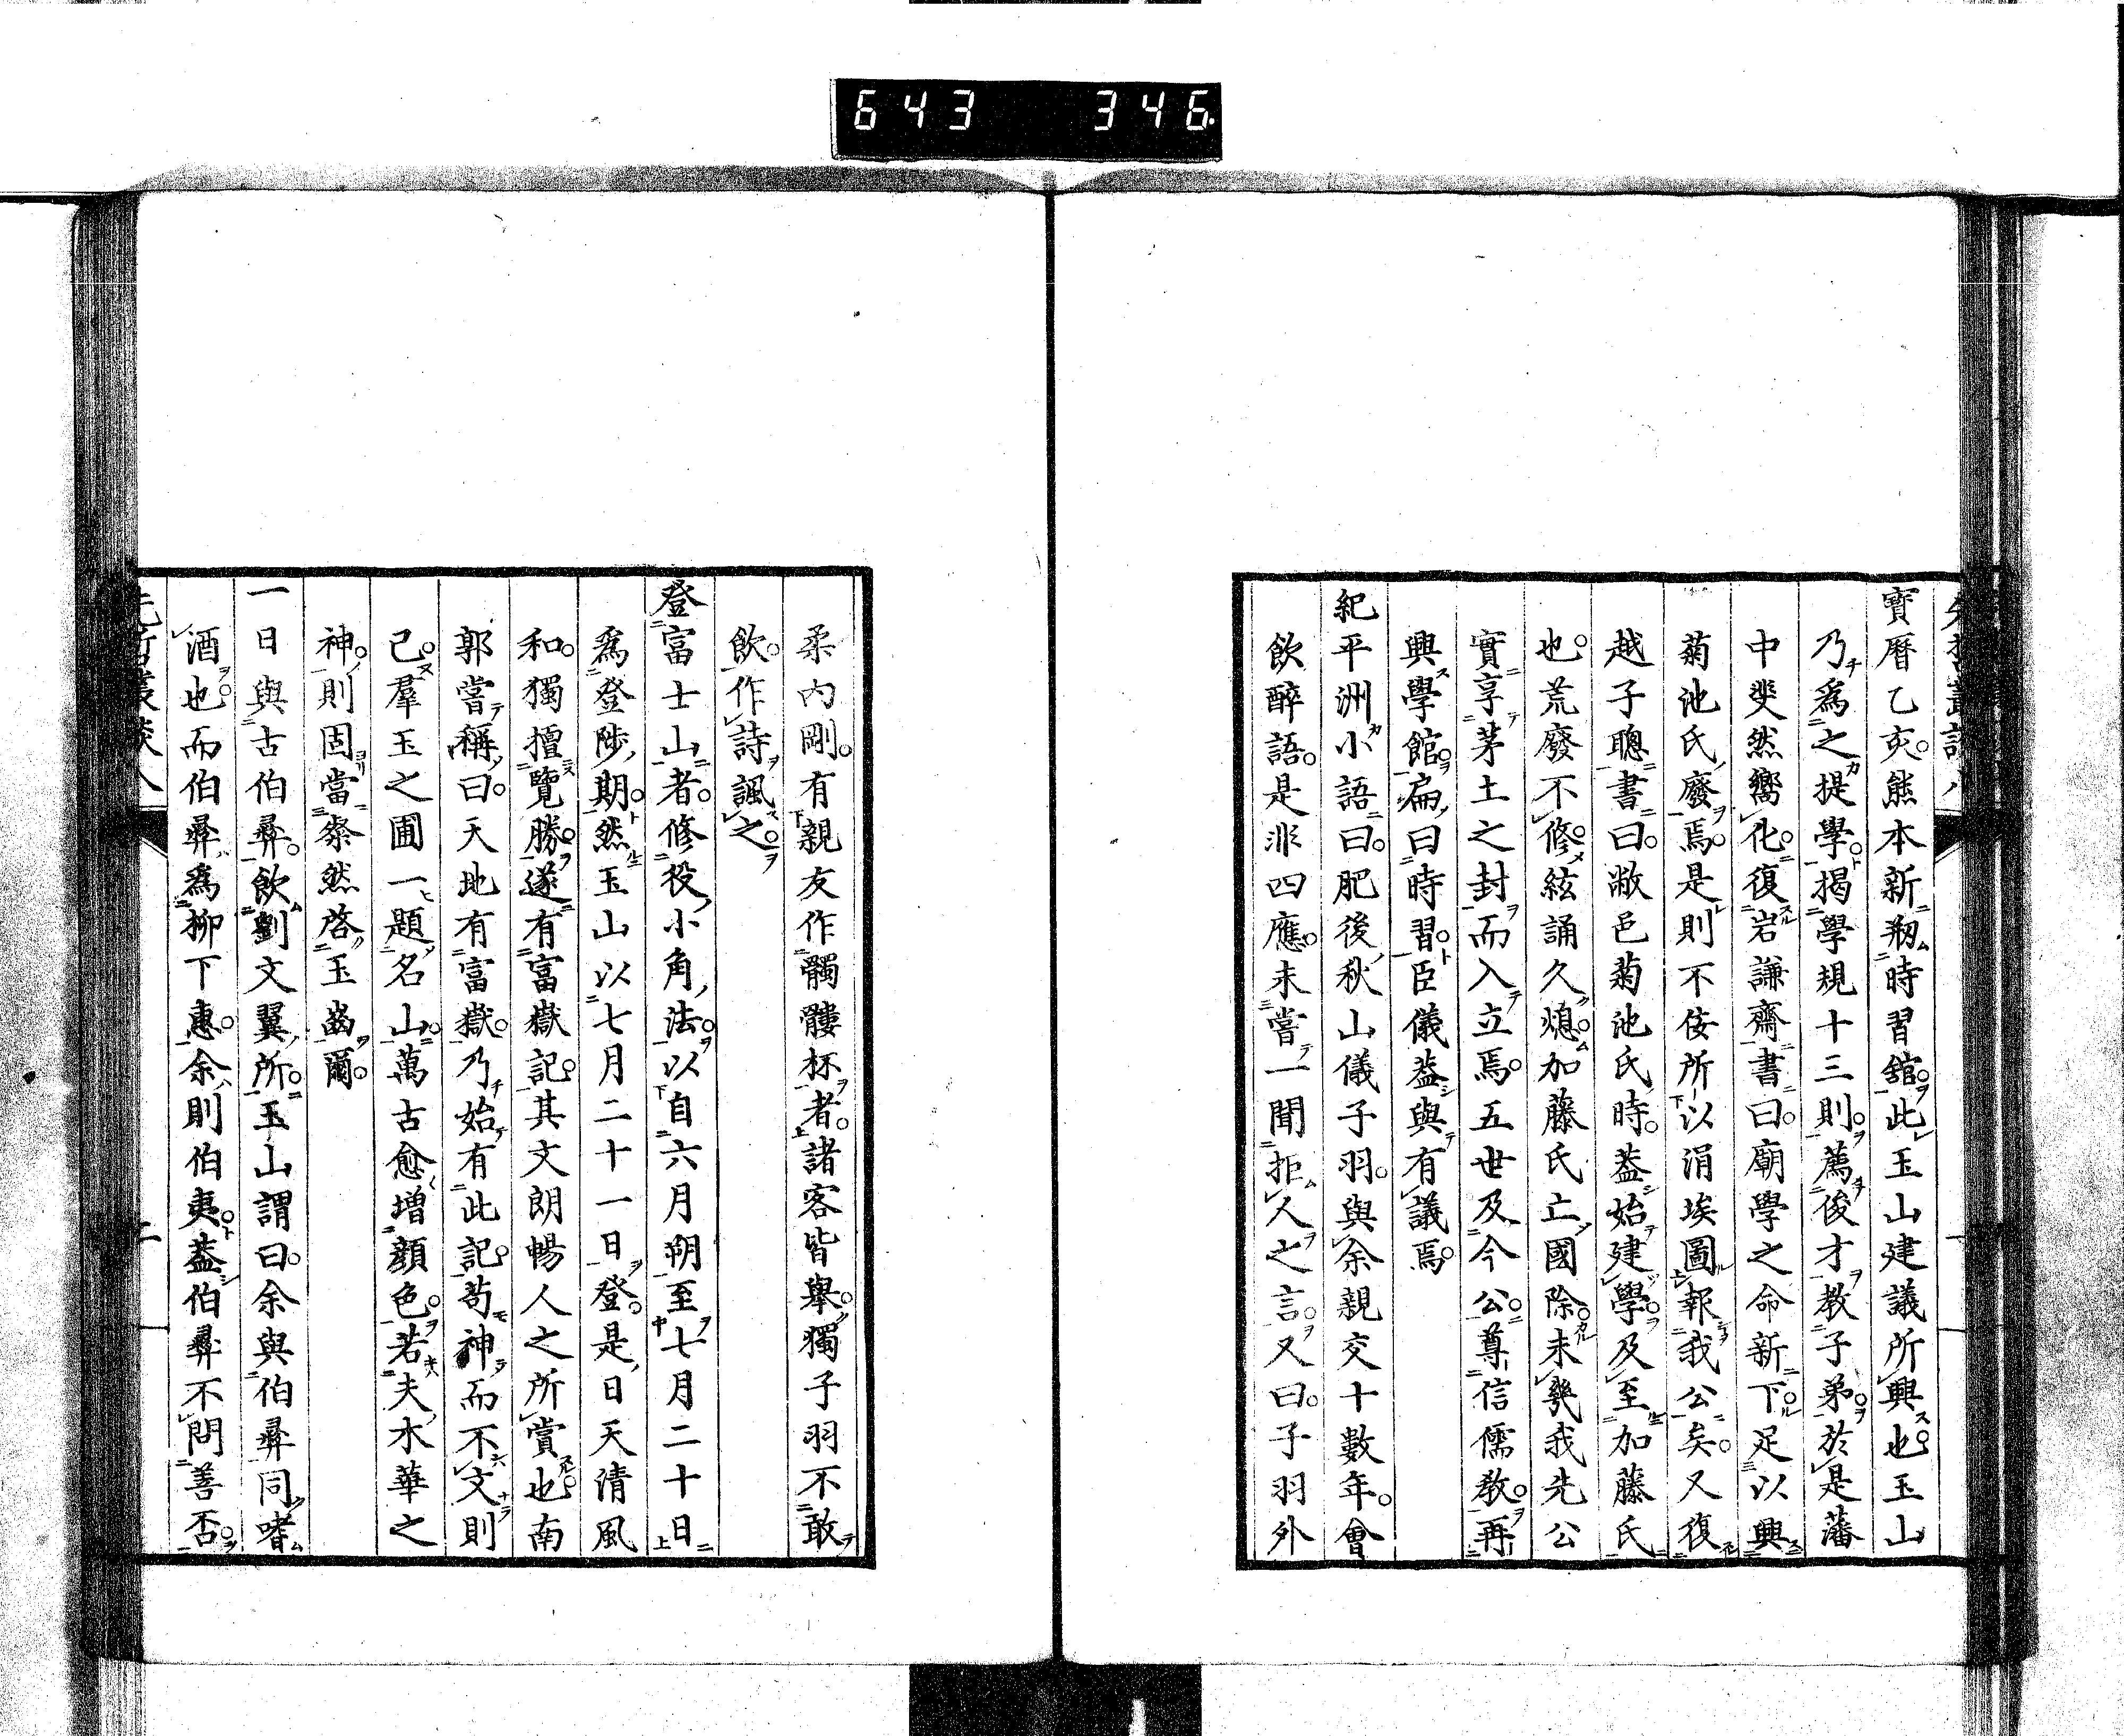 643 346
寶曆乙亥熊本新剏時習館此玉山建議所興也玉山
乃爲之提學揭學規十三則薦俊才教子弟於是藩
中斐然嚮化復岩謙齋書曰廟學之命新下足以興
菊池氏廢焉是則不佞所以涓埃圖報我公矣又復
越子聰書曰敝邑菊池氏時蓋始建學及至加藤氏
也荒廢不修絃誦久熄加藤氏亡國除未幾我先公
實享茅土之封而入立焉五世及今公尊信儒教再
興學館扁曰時習臣儀蓋與有議焉
紀平洲小語曰肥後秋山儀子羽與余親交十數年會
飲醉語是非四應未嘗一聞拒人之言又曰子羽外
柔內剛有親友作髑髏杯者諸客皆舉獨子羽不敢
飲作詩諷之
登富士山者修役小角法以自六月朔至七月二十日
爲登陟期然玉山以七月二十一日登是日天清風
和獨擅覽勝遂有富嶽記其文朗暢人之所賞也南
郭嘗稱曰天地有富嶽乃始有此記苟神而不文則
已羣玉之圃一題名山萬古愈增顏色若夫水華之
神則固當粲然啓玉齒爾
一日與古伯彝飲劉文翼所玉山謂曰余與伯彝同嗜
酒也而伯彝爲柳下惠余則伯夷蓋伯彝不問善否